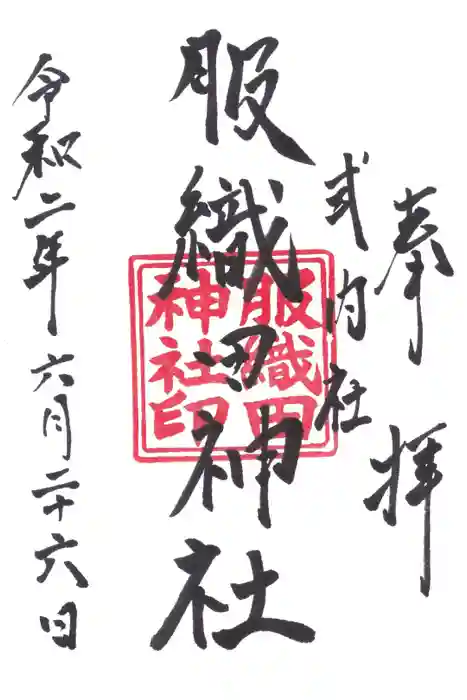 奉拝
式内社
服織田神社
服織田
神社印
令和二年六月二十六日